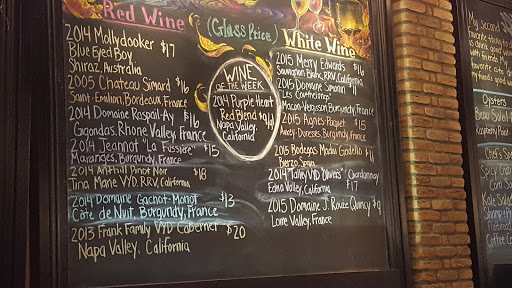 Red Wine
(Glass Price)
White Wine
2014 Mollydooker $17
Blue Eyed Boy
Shiraz, Australia
2005 Chateau Simard $16
Saint-Emilion, Bordeaux, France
2014 Domaine Raspail-Ay $16
Gigondas, Rhone Valley, France
2014 Jeannot "La Fussière" $15
Maranges, Burgundy, France
2014 Anthill Pinot Noir $18
Tina Marie VYD, RRV, California
2014 Domaine Gachot-Monot $13
Côte de Nuit, Burgundy, France
2013 Frank Family VYD Cabernet $20
Napa Valley, California
WINE
OF THE WEEK
2014 Purple Heart
Red Blend
Napa Valley,
California
2015 Merry Edwards $16
Sauvignon Blanc, RRV, California
2015 Domaine Simonin $11
Macon-Vergisson, Burgundy, France
2015 Agnès Paquet $15
Auxey-Duresses, Burgundy, France
2015 Bodegas Godello $11
Bierzo, Spain
2014 "Talley VYD Chardonnay
Edna Valley, California $17
2015 Domaine J. Route Quincy $9
Loire Valley, France
My second
favorite thing to
is drink good
with friends. My
favorite
food
Oysters
Beau Soleil
Raspberry Point
Chef's
Spicy Crab
Corn
Kale Salad
Shrimp
Flatbread
Coffee